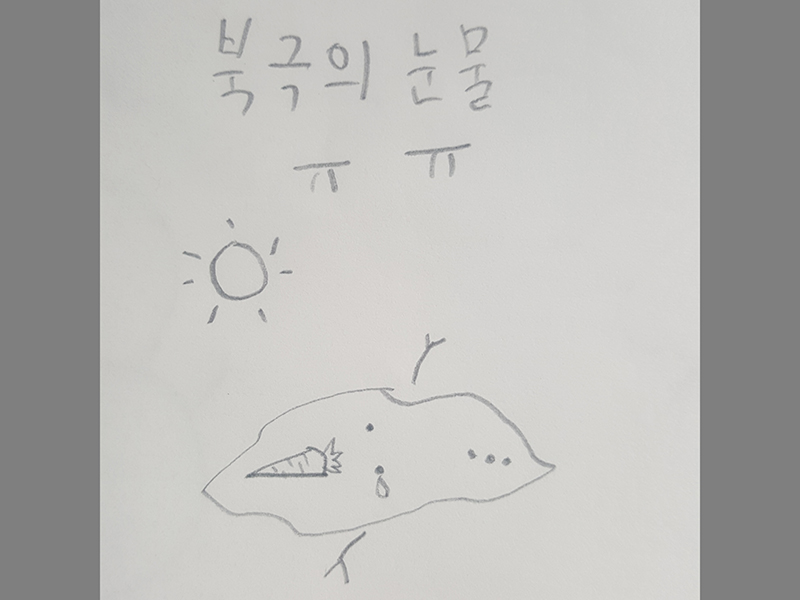 북극의 눈물
ㅠ ㅠ